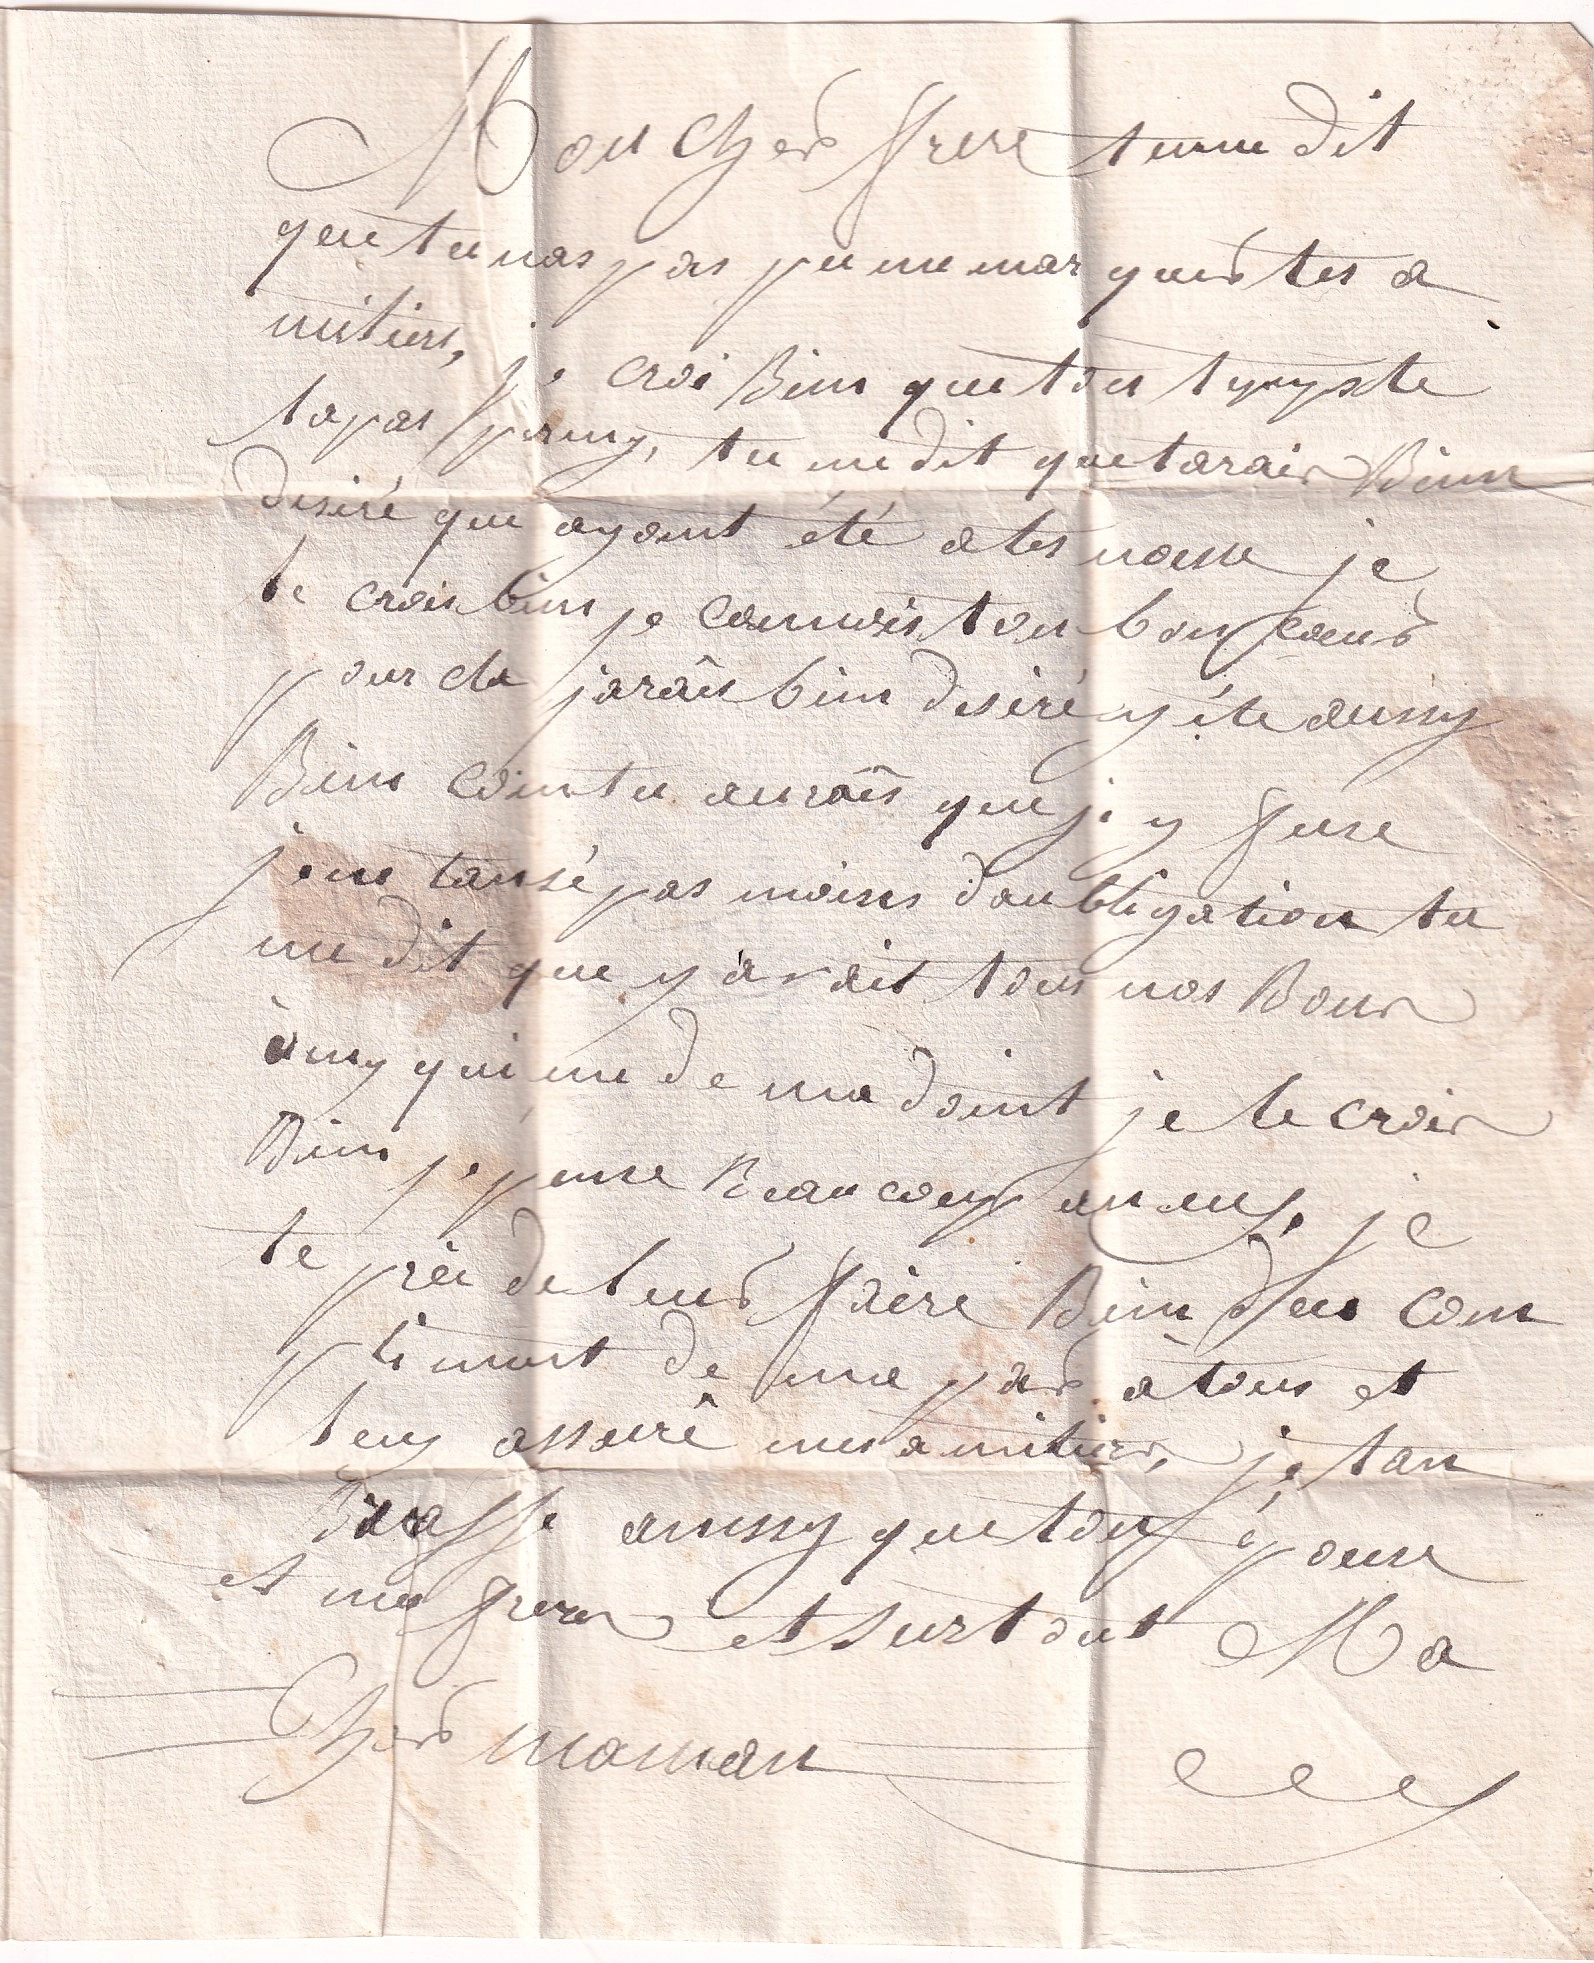 Mon cher frere tu me dit
que tu nas pas pu me marquer tes a
mitiers, je croi Bien que ton
ta pas permy, tu me dit que tarais Bien
desiré que ayant été a tes nosse je
te crois bien je connois ton bon coeur
pour cla jarâis bien desiré y éte aussy
Bien comtu aurâis que j'y fuse
je ne tansé pas moins daubligation tu
me dit que y avait tous nos Bons
àmy qui me demandoint je te crois
Bien je pense Beaucoup a eux, je
te prêi de leur faire Bien des com
pliment de ma par à tous et
leuy assurê mes amitiers, je tan
Brasse aussy que ton épouse
et me freres et surtout Ma
Cher maman